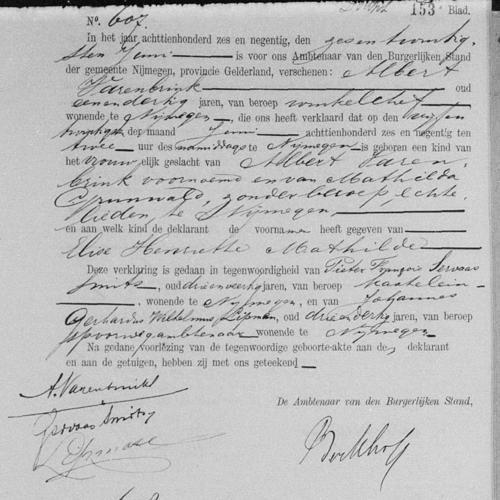 153 Blad.
No. 607.
In het jaar achttienhonderd zes en negentig, den zes en twintig
sten Juni is voor ons Ambtenaar van den Burgerlijken Stand
der gemeente Nijmegen, provincie Gelderland, verschenen: Albert
Varenbrink oud
een en dertig jaren, van beroep winkelchef
wonende te Nijmegen, die ons heeft verklaard dat op den vijf en
twintigsten der maand Juni achttienhonderd zes en negentig ten
twee uur des namiddags te Nijmegen is geboren een kind van
het vrouwelijk geslacht van Albert Varen
brink voornoemd en van Mathilda
Grunwald, zonder beroep, echte
lieden, te Nijmegen
en aan welk kind de deklarant de voorname heeft gegeven van
Elise Henriette Mathilde
Deze verklaring is gedaan in tegenwoordigheid van Pieter François Servaas
Smits, oud drie en veertig jaren, van beroep
, wonende te Nijmegen, en van Johannes
Gerhardus Wilhelmus, oud drie en dertig jaren, van beroep
wonende te Nijmegen
Na gedane voorlezing van de tegenwoordige geboorte-akte aan de deklarant
en aan de getuigen, hebben zij met ons geteekend
A. Varenbrink
De Ambtenaar van den Burgerlijken Stand,
Servaas Smits